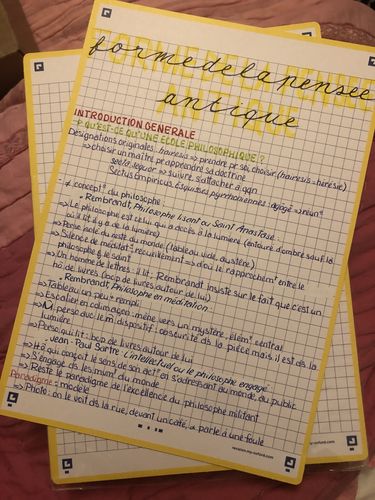 forme de la pensée
antique
INTRODUCTION GENERALE
→ QU'EST-CE QU'UNE ECOLE PHILOSOPHIQUE ?
Désignations originales : hairesis → prendre pr soi, choisir (hairesis = hérésie)
→ choisir un maître pr apprendre sa doctrine
secte sequor → suivre, s'attacher à qqn
Sextus Empiricus, Esquisses pyrrhoniennes : agôgè →
≠ concept° du philosophe :
• Rembrandt, Philosophe lisant ou Saint Anastase :
→ Le philosophe est celui qui a accès à la lumière (entouré d'ombre sauf là
où il lit il y a de la lumière)
→ Perso isolé du reste du monde (tableau vide, austère)
→ Silence de méditat°, recueillement → d'où le rapprochemt entre le
philosophe & le saint
→ Un homme de lettres : il lit ; Rembrandt insiste sur le fait que c'est un
ho de livres (bcp de livres autour de lui)
• Rembrandt, Philosophe en méditation
→ Tableau un peu + rempli
→ Escalier en colimaçon : mène vers un mystère, élémt central
→ Perso avec le m̂ dispositif : obscurité ds la pièce mais il est ds la
lumière
→ Perso qui lit : bcp de livres autour de lui
• Jean-Paul Sartre : L'intellectuel ou le philosophe engagé
→ qui conçoit le sens de son act° en s'adressant au monde, au public
→ S'engage ds les du monde
→ Reste le paradigme de l'excellence du philosophe militant
Paradigme = modèle
→ Photo : on le voit ds la rue, devant un café, à parle à une foule
revision.my-oxford.com